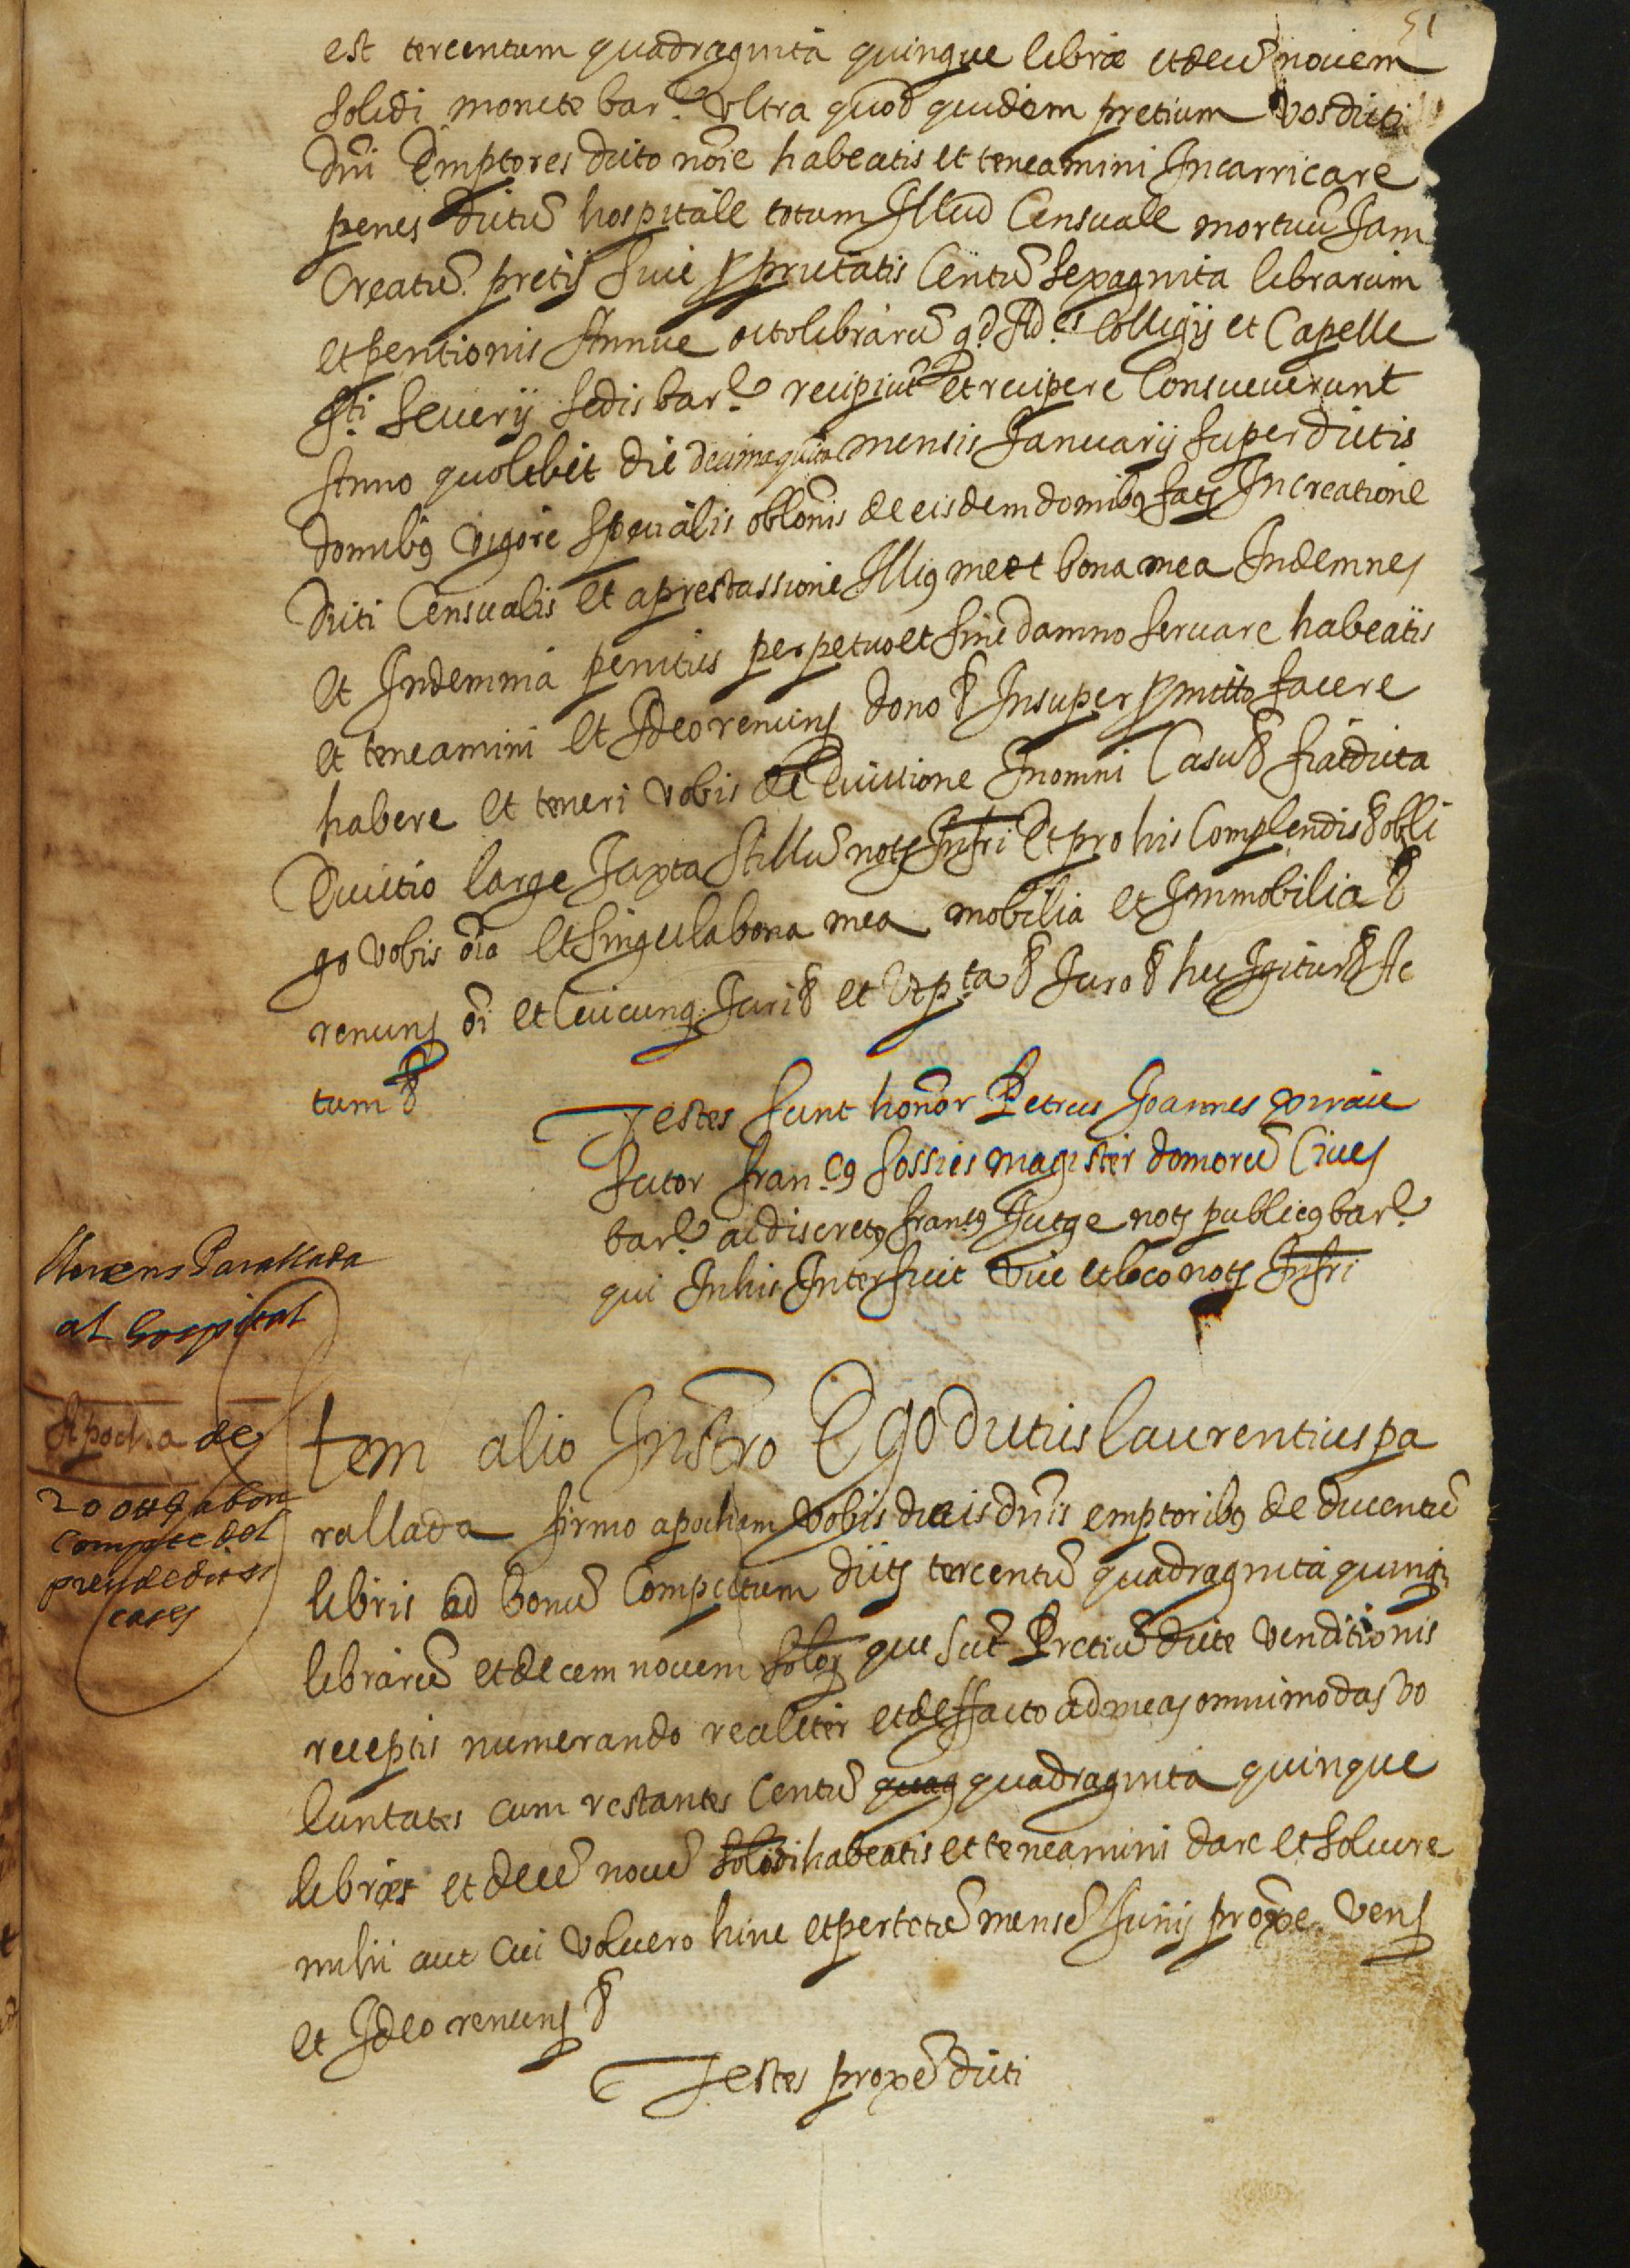 51
est tercentum quadraginta quinque libre et decẽ novem
solidi monete bar.e ultra quod quidem pretium vos dicti
dñi Emptores dicto nõie habeatis et teneamini Incarricare
penes dictũ hospitale totum Illud Censuale mortuũ Jam
Creatũ pretij sive pprietatis Centũ sexaginta librarum
et pentionis Annue octo librarũ qd Ad.es Collegij et Capelle
Sti Severij sedis bar.e recipiũt et recipere Consueverunt
Anno quolibet die decimaquinta mensis Januarij super dictis
domibꝰ vigore specialis oblõnis de eisdem domibꝰ facte In creatione
dicti Censualis et aprestassione Illiꝰ me et bona mea Indemnes
et Indemnia penitus perpetuo et sine damno servare habeatis
et teneamini et Ideo renuns dono & Insuper pmitto facere
habere et teneri vobis de Evictione In omni Casu & fiat dicta
Evictio large Juxta stillũ notj Infri Et pro his Complendis & obli
go vobis oĩa et singula bona mea mobilia et Immobilia &
renuns oĩ et Cuicunq. Juri & et Ut pta & Juro & hec Igitur & Ac
tum &
Testes sunt honor Petrus Joannes
sutor fran.cꝰ fossies magister domorũ Cives
bar.e ac discretꝰ francꝰ Jutge notj publicꝰ bar.e
qui In his Interfuit vice et loco notj Infri
Llorens Parallada
al hospital
Apocha de
200 ℔ a bon
compte del
preu de dites
cases
Item alio Instro Ego dictus laurentius pa
rallada firmo apocham vobis dictis dnis emptoribꝰ de ducentũ
libris ad bonũ Computum dictj tercentũ quadraginta quinq
librarũ et decem novem soloj que sũt Pretiũ dicte venditionis
receptis numerando realiter et de facto ad meas omnimodas vo
luntates cum restantes Centũ quaq quadraginta quinque
libras et decẽ novẽ solidi habeatis et teneamini dare et solvere
mihi aut cui voluero hinc et per totũ mensẽ Junij proxe. vens
et Ideo renuns &
Testes proxẽ dicti